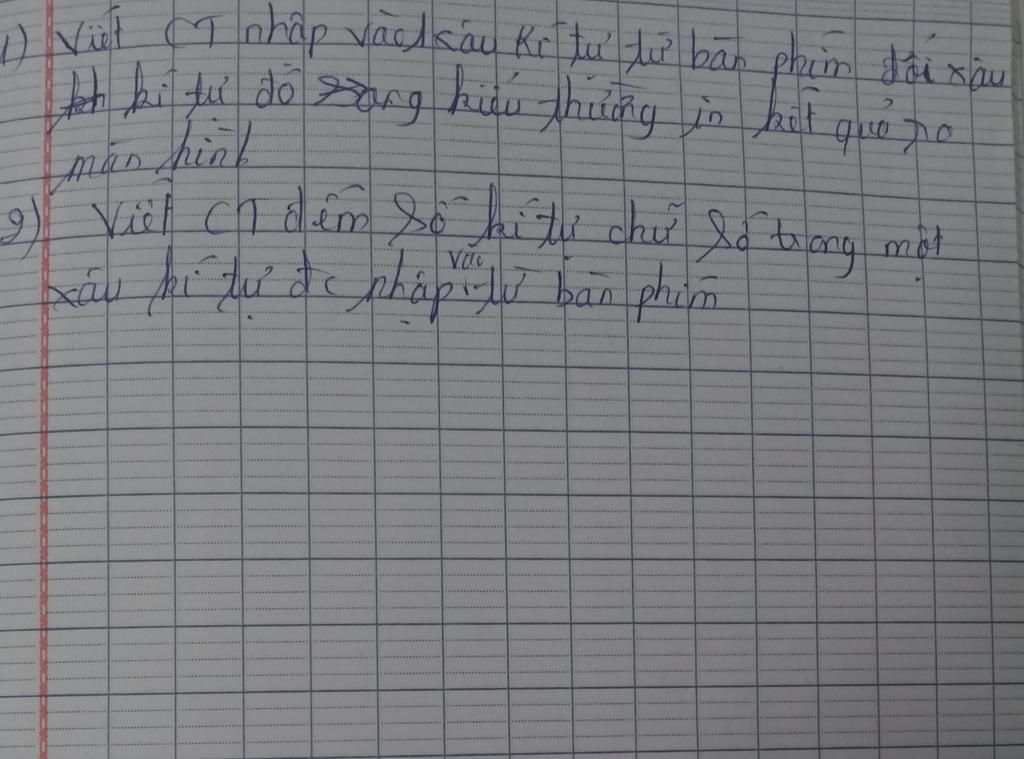 1) Viết CT nhập vào 1 xâu kí tự từ bàn phím đổi xâu
kí tự đó sang kiểu thường in kết quả ra
màn hình
2) Viết CT đếm số kí tự chữ số trong một
xâu kí tự đc nhập vào từ bàn phím